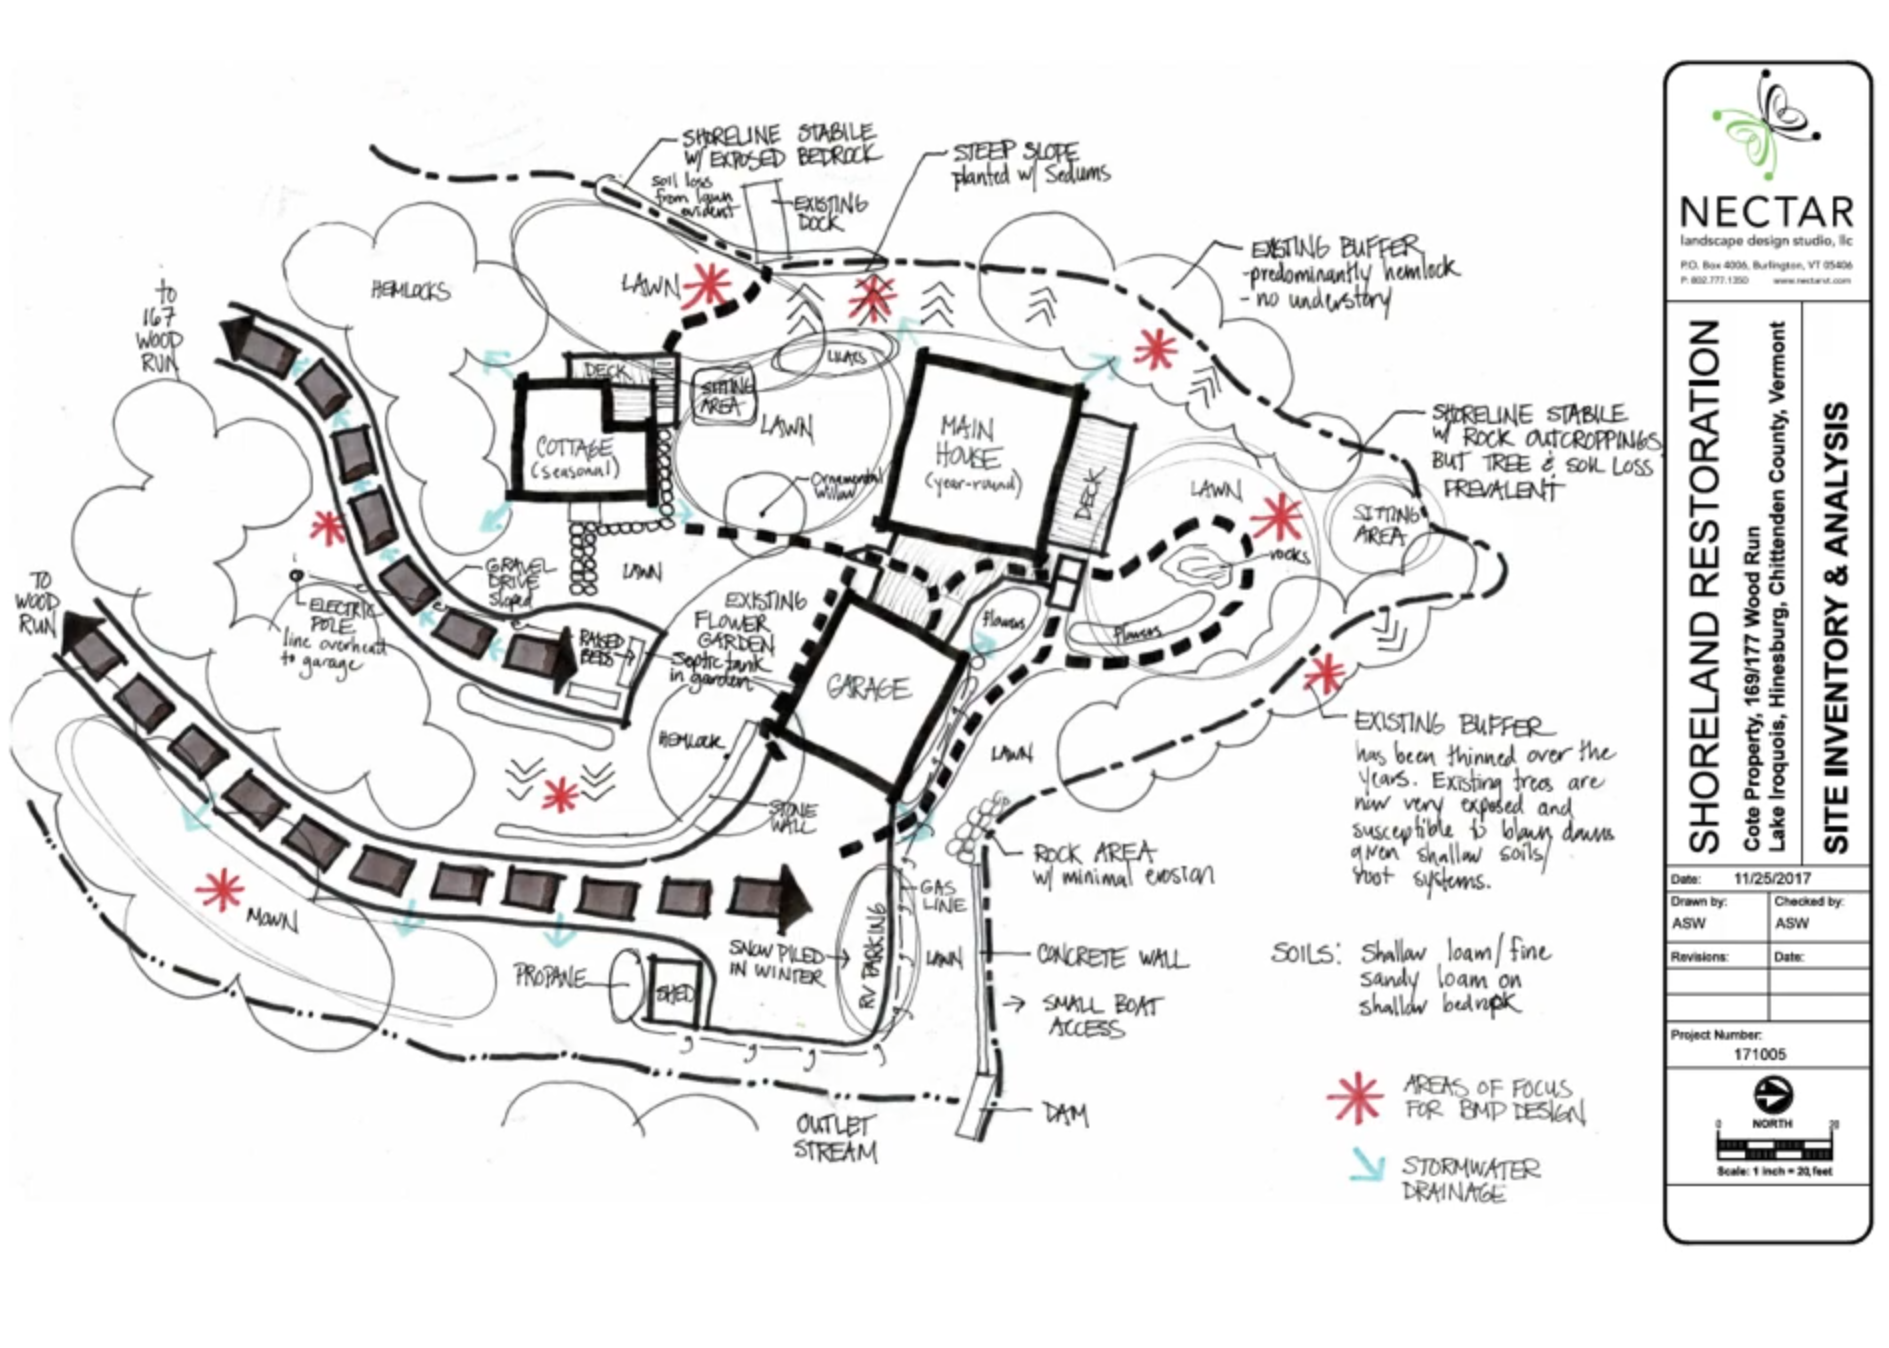 SHORELINE STABILE
W/ EXPOSED BEDROCK
soil loss
from lawn
evident
EXISTING
DOCK
STEEP SLOPE
planted w/ Sedums
EXISTING BUFFER
-predominantly hemlock
- no understory
HEMLOCKS
LAWN
to
167
WOOD
RUN
DECK
SITTING
AREA
LILACS
LAWN
COTTAGE
(seasonal)
MAIN
HOUSE
(year-round)
DECK
Ornamental
Willow
LAWN
rocks
SITTING
AREA
SHORELINE STABILE
W/ ROCK OUTCROPPINGS
BUT TREE & SOIL LOSS
PREVALENT
TO
WOOD
RUN
ELECTRIC
POLE
line overhead
to garage
GRAVEL
DRIVE
sloped
LAWN
RAISED
BEDS
EXISTING
FLOWER
GARDEN
Septic tank
in garden
Flowers
Flowers
GARAGE
HEMLOCK
STONE
WALL
LAWN
EXISTING BUFFER
has been thinned over the
years. Existing trees are
now very exposed and
susceptible to blow downs
given shallow soils/
root systems.
ROCK AREA
w/ minimal erosion
GAS
LINE
MOWN
PROPANE
SHED
SNOW PILED
IN WINTER
RV PARKING
LAWN
CONCRETE WALL
SMALL BOAT
ACCESS
SOILS: Shallow loam/fine
sandy loam on
shallow bedrock
OUTLET
STREAM
DAM
AREAS OF FOCUS
FOR BMP DESIGN
STORMWATER
DRAINAGE
NECTAR
landscape design studio, llc
P.O. Box 4006, Burlington, VT 05406
P: 802.777.1350 www.nectarvt.com
SHORELAND RESTORATION
Cote Property, 169/177 Wood Run
Lake Iroquois, Hinesburg, Chittenden County, Vermont
SITE INVENTORY & ANALYSIS
Date: 11/25/2017
Drawn by: Checked by:
ASW ASW
Revisions: Date:
Project Number:
171005
NORTH
0 20
Scale: 1 inch = 20 feet